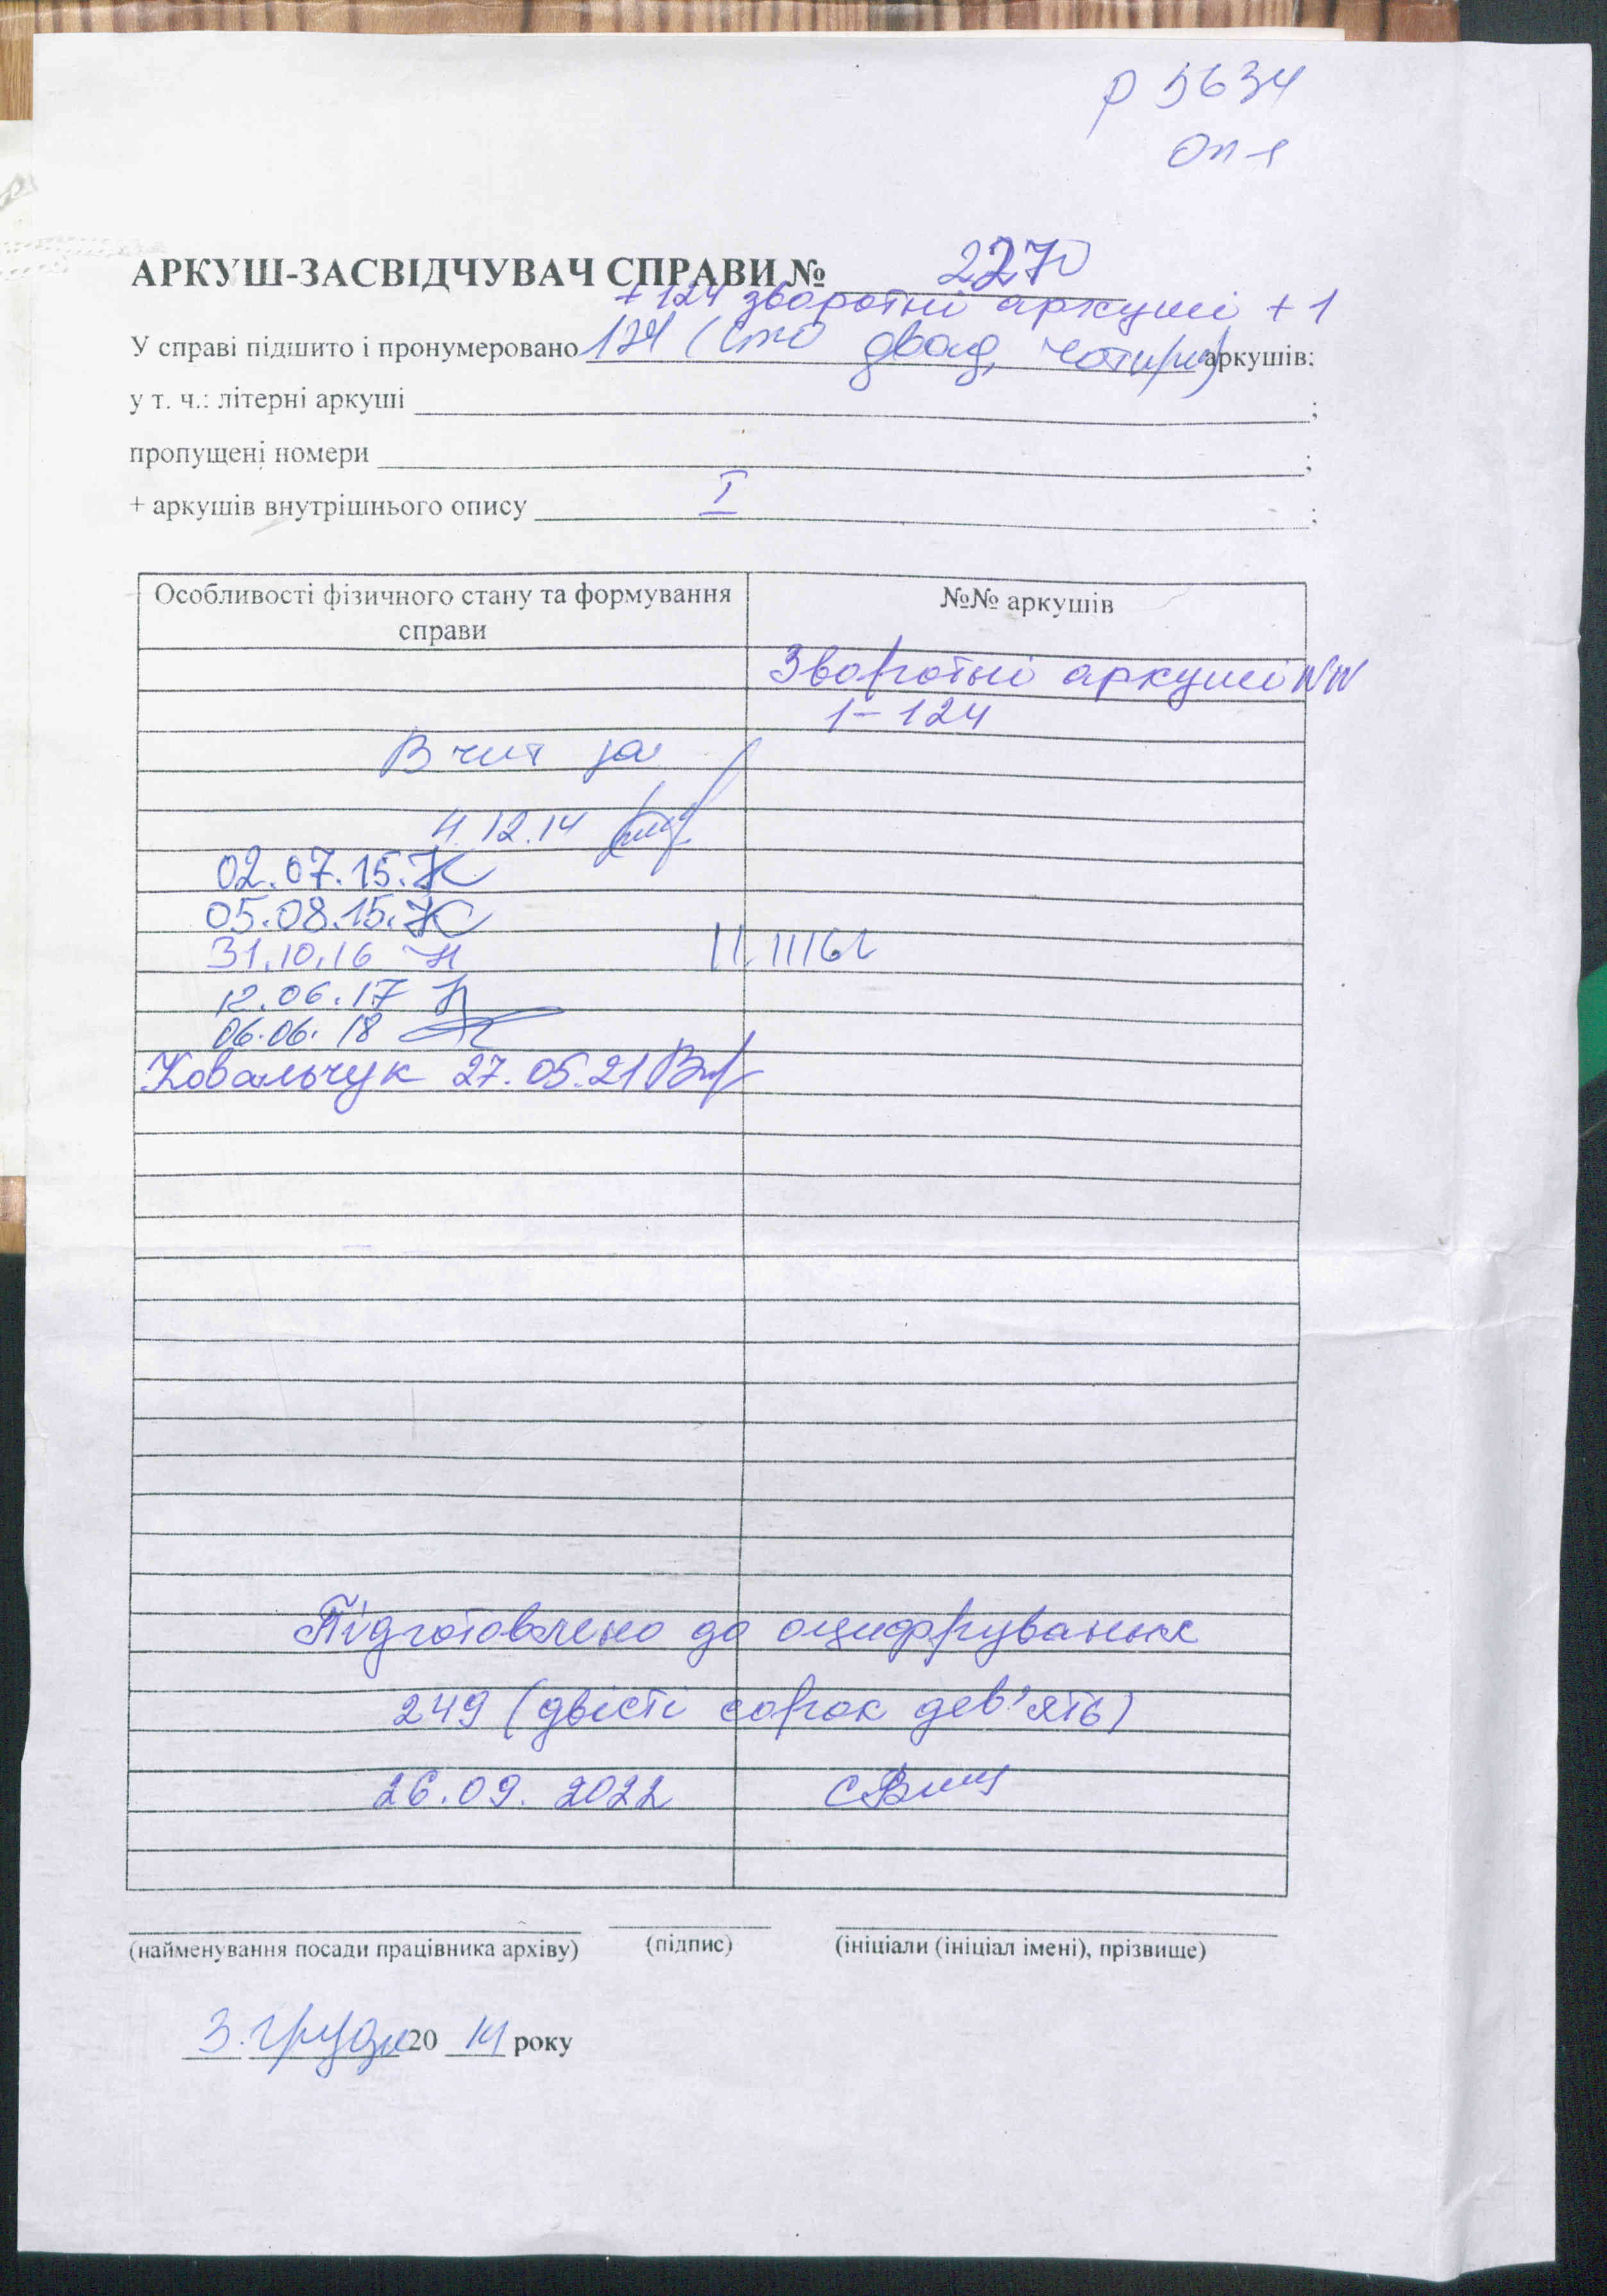 Р 5634
Оп 1
АРКУШ-ЗАСВІДЧУВАЧ СПРАВИ № 2270
+ 124 зворотні аркуші + 1
У справі підшито і пронумеровано 124 (сто двад, чотири) аркушів;
у т. ч.: літерні аркуші ;
пропущені номери ;
+ аркушів внутрішнього опису I ;
Особливості фізичного стану та формування справи
№№ аркушів
Зворотні аркуші NN
1-124
В чит за
4.12.14
02.07.15.
05.08.15.
31.10.16
12.06.17
06.06.18
Ковальчук 27.05.21
Підготовлено до оцифрування
249 (двісті сорок дев'ять)
26.09.2022
(найменування посади працівника архіву) (підпис) (ініціали (ініціал імені), прізвище)
3. грудн 20 14 року